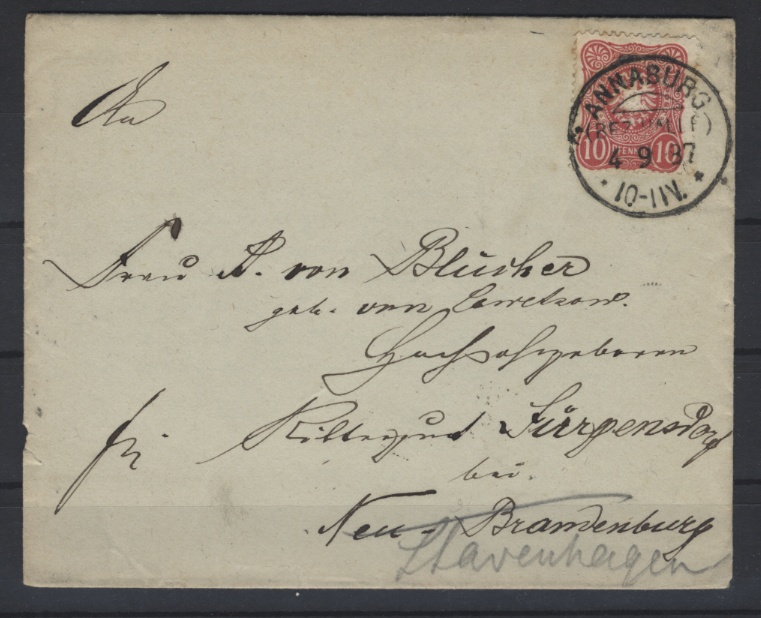 An
ANNABURG
10 PFENNIG 10
4 9 87
* 10-11V. *
Frau A. von Blücher
geb. von
Hochwohlgeboren
fr. Rittergut Jürgensdorf
bei.
Neu-Brandenburg
Stavenhagen